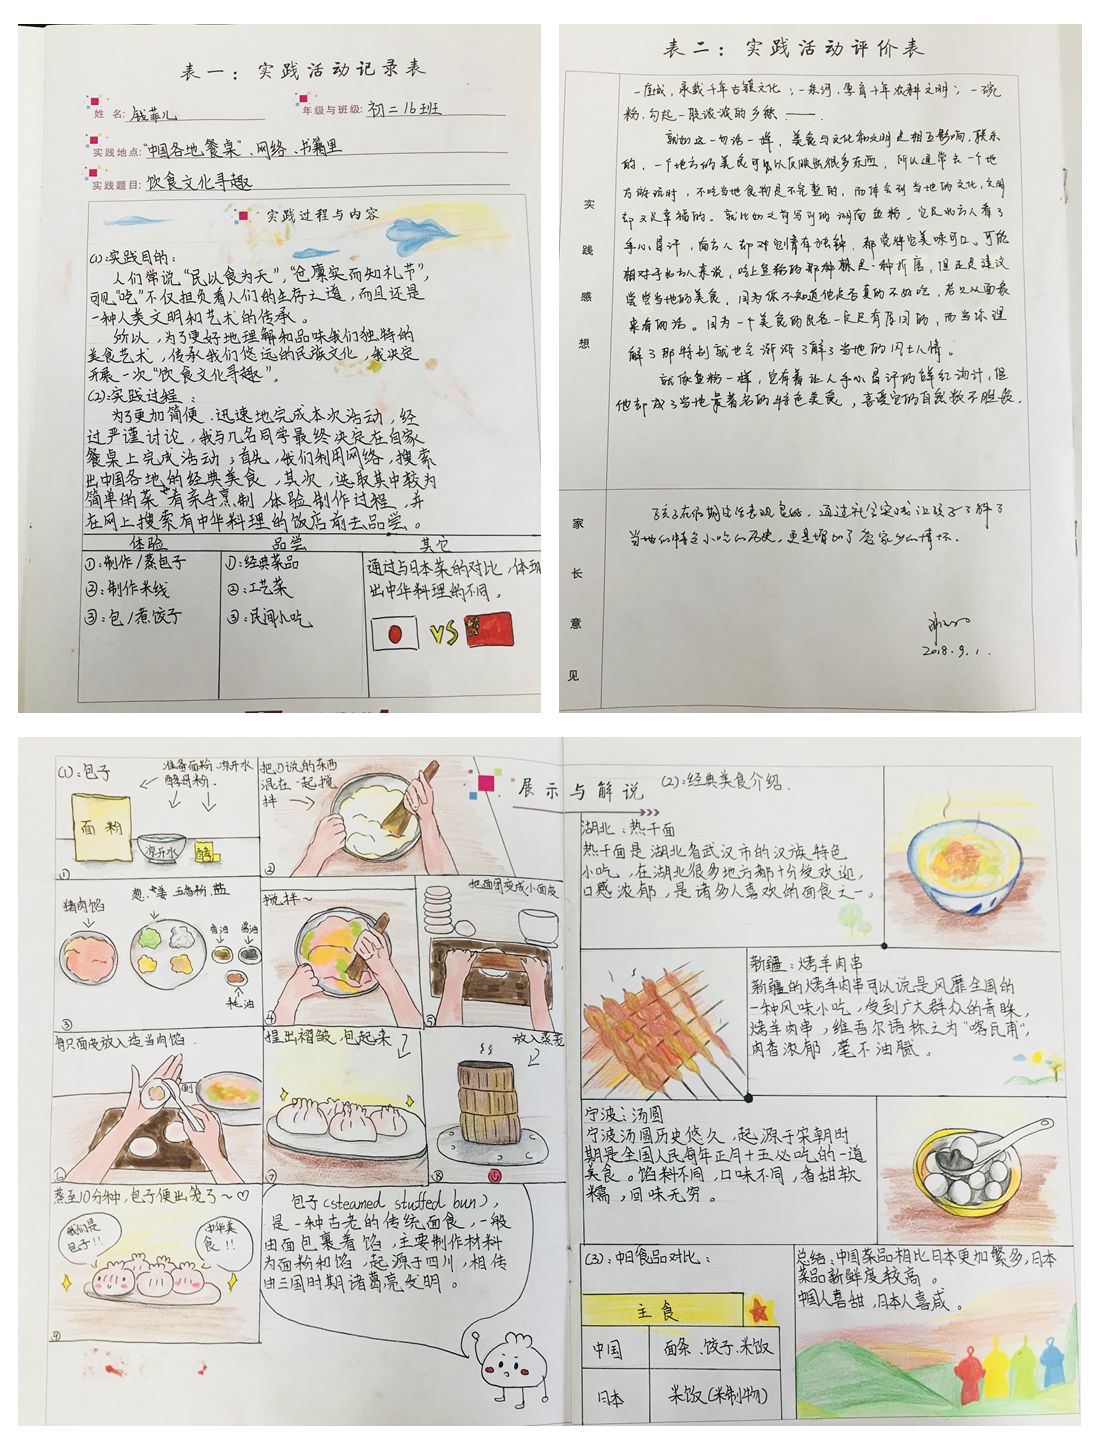 表一：实践活动记录表
姓 名: 钱菲儿
年级与班级: 初二16班
实践地点: "中国各地餐桌"、网络、书籍里
实践题目: 饮食文化寻趣
实践过程与内容
(1):实践目的：
人们常说"民以食为天"，"仓廪实而知礼节"，
可见"吃"不仅担负着人们的生存之道，而且还是
一种人类文明和艺术的传承。
所以，为了更好地理解和品味我们独特的
美食艺术，传承我们悠远的民族文化，我决定
开展一次"饮食文化寻趣"。
(2):实践过程：
为了更加简便、迅速地完成本次活动，经
过严谨讨论，我与几名同学最终决定在自家
餐桌上完成活动；首先，我们利用网络，搜索
出中国各地的经典美食，其次，选取其中较为
简单的菜肴亲手烹制，体验制作过程，并
在网上搜索有中华料理的饭店前去品尝。
体验
①:制作/蒸包子
②:制作米线
③:包/煮饺子
品尝
①:经典菜品
②:工艺菜
③:民间小吃
其它
通过与日本菜的对比，体现
出中华料理的不同。
VS
表二：实践活动评价表
实践感想
一座城，承载千年古镇文化；一条河，孕育千年农耕文明；一碗
粉，勾起一股浓浓的乡愁——.
就如这一句话一样，美食与文化和文明是相互影响，联系
的，一个地方的美食可以反映出很多东西，所以通常去一个地
方游玩时，不吃当地食物是不完整的，而体会到当地的文化，文明
却又是幸福的。就比如之前写到的湖南鱼粉，它是北方人看了
手心冒汗，南方人却对它情有独钟，都觉得它美味可口。可能
相对于北方人来说，吃上鱼粉的那种辣是一种折磨，但还是建议
尝尝当地的美食，因为你不知道他是否真的不好吃，
因为一个美食的民名一定是有原因的，而当你理
解了那特别就也会渐渐了解了当地的风土人情。
就像鱼粉一样，它有着让人手心冒汗的鲜红汤汁，但
他却成了当地最著名的特色美食，喜爱它的自然数不胜数。
家长意见
孩子在假期生活表现良好，通过社会实践让孩子了解了
当地的特色小吃的历史，更是增加了爱家乡的情怀.
2018.9.1.
展示与解说
(1):包子
准备面粉.凉开水
酵母粉.
面粉
凉开水
①
把①说的东西
混在一起搅
拌
②
猪肉馅
葱.姜.五香粉.盐
香油
酱油
③
搅拌~
④
把面团变成小面皮
⑤
每只面皮放入适当肉馅.
⑥
捏出褶皱,包起来
⑦
放入蒸笼
⑧
蒸至10分钟,包子便出笼了~♡
我们是
包子!!
中华美
食!!
⑨
包子(steamed stuffed bun)，
是一种古老的传统面食，一般
由面包裹着馅，主要制作材料
为面粉和馅，起源于四川，相传
由三国时期诸葛亮发明。
(2):经典美食介绍.
湖北：热干面
热干面是湖北省武汉市的汉族特色
小吃，在湖北很多地方都十分受欢迎，
口感浓郁，是诸多人喜欢的面食之一。
新疆：烤羊肉串
新疆的烤羊肉串可以说是风靡全国的
一种风味小吃，受到广大群众的青睐，
烤羊肉串，维吾尔语称之为"喀瓦甫"，
肉香浓郁，毫不油腻。
宁波：汤圆
宁波汤圆历史悠久，起源于宋朝时
期是全国人民每年正月十五必吃的一道
美食。馅料不同，口味不同，香甜软
糯，回味无穷。
(3):中日食品对比：
主食
中国 面条、饺子、米饭
日本 米饭(米制物)
总结：中国菜品相比日本更加繁多，日本
菜品新鲜度较高。
中国人喜甜，日本人喜咸。